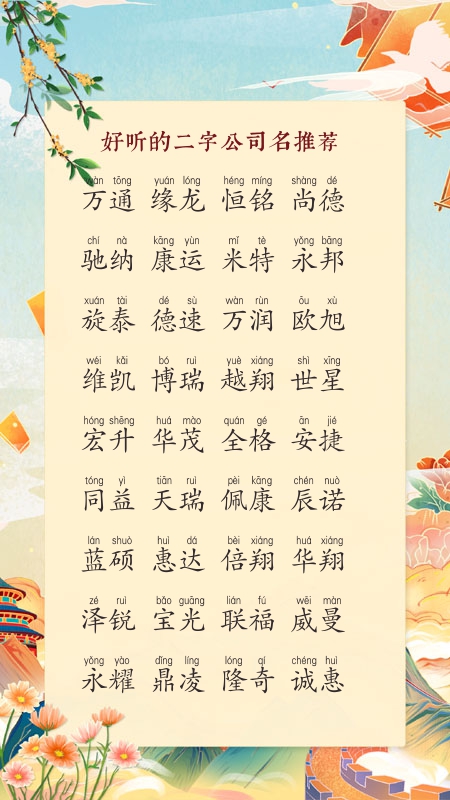 好听的二字公司名推荐
wàn tōng yuán lóng héng míng shàng dé
万通 缘龙 恒铭 尚德
chí nà kāng yùn mǐ tè yǒng bāng
驰纳 康运 米特 永邦
xuán tài dé sù wàn rùn ōu xù
旋泰 德速 万润 欧旭
wéi kǎi bó ruì yuè xiáng shì xīng
维凯 博瑞 越翔 世星
hóng shēng huá mào quán gé ān jié
宏升 华茂 全格 安捷
tóng yì tiān ruì pèi kāng chén nuò
同益 天瑞 佩康 辰诺
lán shuò huì dá bèi xiáng huá xiáng
蓝硕 惠达 倍翔 华翔
zé ruì bǎo guāng lián fú wēi màn
泽锐 宝光 联福 威曼
yǒng yào dǐng líng lóng qí chéng huì
永耀 鼎凌 隆奇 诚惠